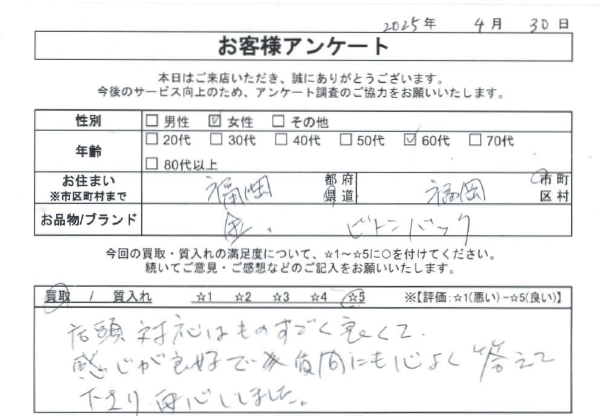 2025年 4月 30日
お客様アンケート
本日はご来店いただき、誠にありがとうございます。
今後のサービス向上のため、アンケート調査のご協力をお願いいたします。
性別 □ 男性 ☑ 女性 □ その他
年齢 □ 20代 □ 30代 □ 40代 □ 50代 ☑ 60代 □ 70代
□ 80代以上
お住まい ※市区町村まで 福岡 都府県道 福岡 市町区村
お品物/ブランド 金、ビトンバック
今回の買取・質入れの満足度について、☆1~☆5に○を付けてください。
続いてご意見・ご感想などのご記入をお願いいたします。
買取 / 質入れ ☆1 ☆2 ☆3 ☆4 ☆5 ※【評価:☆1(悪い)-☆5(良い)】
店頭対応はものすごく良くて、
感じが良好で質問にも心よく答えて
下さり安心しました。